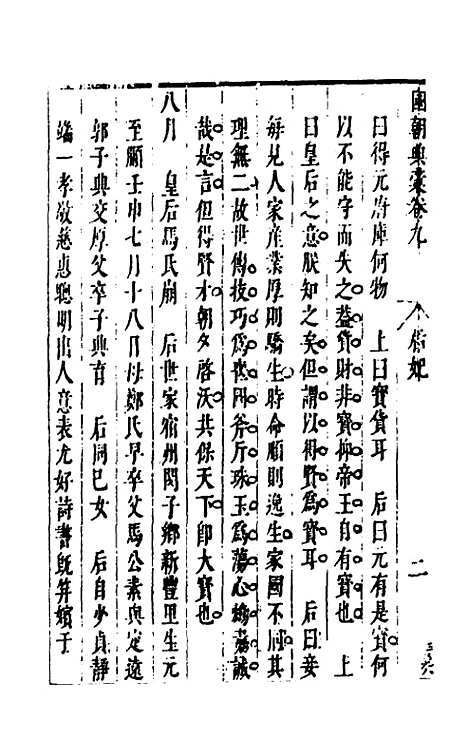 國朝典彙卷九 后妃 二
曰得元府庫何物 上曰寶貨耳 后曰元有是寶何
以不能守而失之蓋貨財非寶抑帝王自有寶也 上
曰皇后之意朕知之矣但謂以得賢為寶耳 后曰妾
每見人家產業厚則驕生時命順則逸生家國不同其
理無二故世傳技巧為喪國斧斤珠玉為蕩心鴆毒誠
哉是言但得賢才朝夕啓沃共保天下即大寶也
八月 皇后馬氏崩 后世家宿州閔子鄉新豐里生元
至順壬申七月十八日母鄭氏早卒父馬公素與定遠
郭子興交厚父卒子興育 后同己女 后自少貞靜
端一孝敬慈惠聰明出人意表尤好詩書既笄嬪于